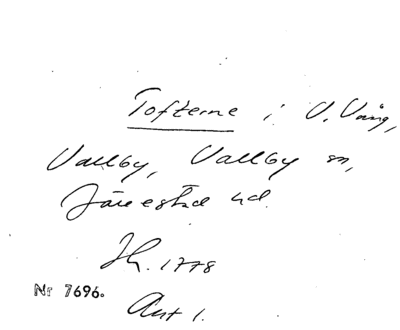 Tofterne i V. Vång,
Vallby, Vallby sn,
Järrestad hd.
Jh. 1778
Nr 7696.
Akt 1.